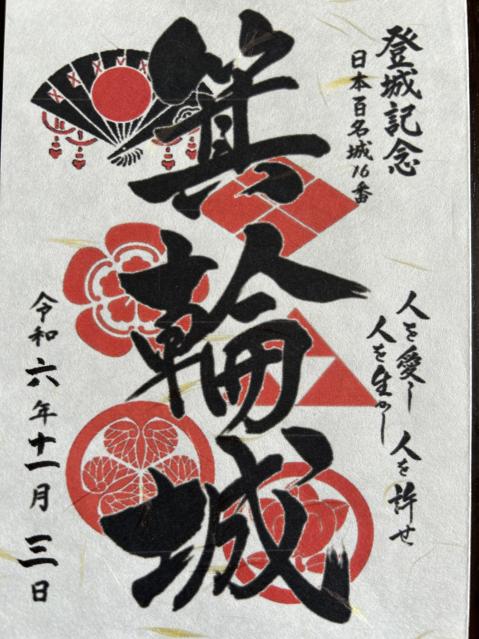 登城記念
日本百名城16番
箕輪城
人を愛し 人を許せ
人を生かし
令和六年十一月三日